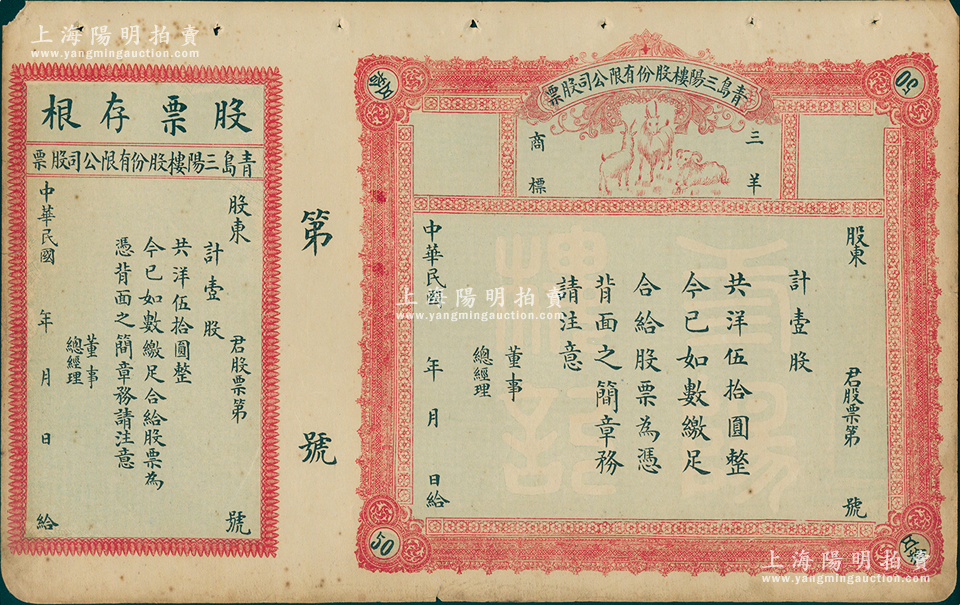 上海陽明拍賣
www.yangmingauction.com
股票存根
青島三陽樓股份有限公司股票
股東　君股票第　號
計壹股
共洋伍拾圓整
今已如數繳足合給股票為
憑背面之簡章務請注意
董事
總經理
中華民國　年　月　日　給
第　號
青島三陽樓股份有限公司股票
三羊
商標
股東　君股票第　號
計壹股
共洋伍拾圓整
今已如數繳足
合給股票為憑
背面之簡章務
請注意
董事
總經理
中華民國　年　月　日給
伍拾
50
50
伍拾
上海陽明拍賣
www.yangmingauction.com
上海陽明拍賣
www.yangmingauction.com